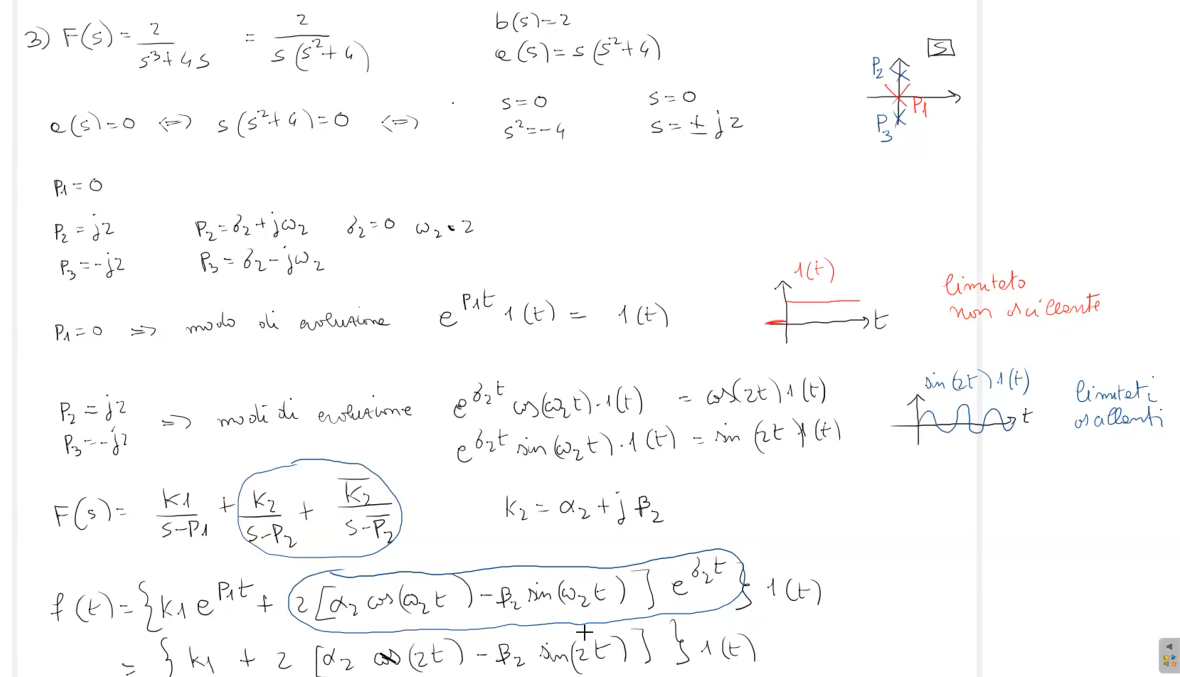 3) F(s) = 2 / (s³+4s) = 2 / (s(s²+4))
b(s)=2
a(s)=s(s²+4)
S
P2
P1
P3
a(s)=0 ⟺ s(s²+4)=0 ⟺ s=0 s=0
s²=-4 s=±j2
P1=0
P2=j2 P2=σ2+jω2 σ2=0 ω2=2
P3=-j2 P3=σ2-jω2
P1=0 ⟹ modo di evoluzione e^{P1t} 1(t) = 1(t)
1(t)
t
limitato
non oscillante
P2=j2
P3=-j2
⟹ modi di evoluzione e^{σ2t} cos(ω2t)·1(t) = cos(2t)1(t)
e^{σ2t} sin(ω2t)·1(t) = sin(2t)1(t)
sin(2t)·1(t)
t
limitati
oscillanti
F(s) = K1/(s-P1) + K2/(s-P2) + K̅2/(s-P̅2) K2=α2+jβ2
f(t) = {K1 e^{P1t} + 2[α2 cos(ω2t) - β2 sin(ω2t)] e^{σ2t}} 1(t)
= {K1 + 2 [α2 cos(2t) - β2 sin(2t)]} 1(t)